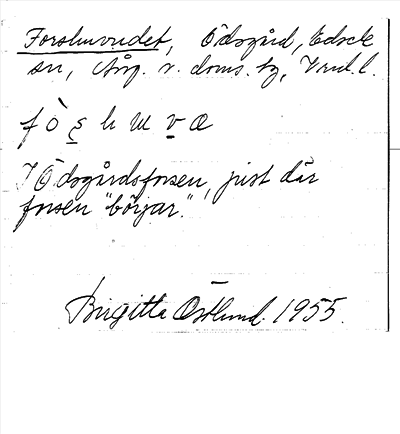 Forshuvudet, Ödsgård, Edsele
sn, Ång. v. doms. hg, Vrml. l.
f ò ş h ɯ v œ
I Ödsgårdsforsen, just där
forsen "börjar".
Birgitta Östlund. 1955.